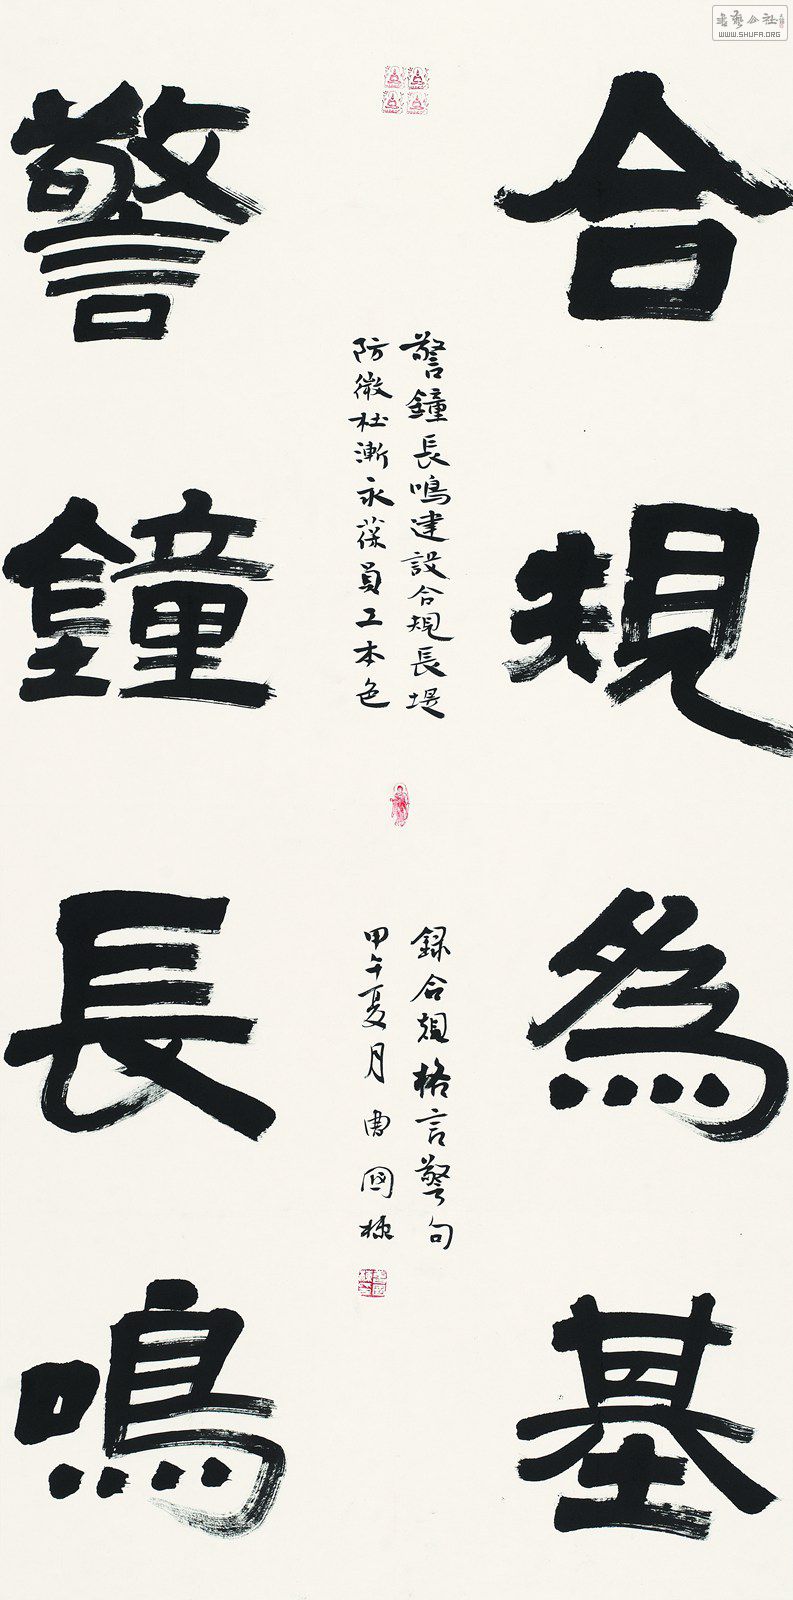 合規為基
警鐘長鳴
警鐘長鳴建設合規長堤
防微杜漸永葆員工本色
録合規格言警句
甲午夏月曹國
WWW.SHUFA.ORG